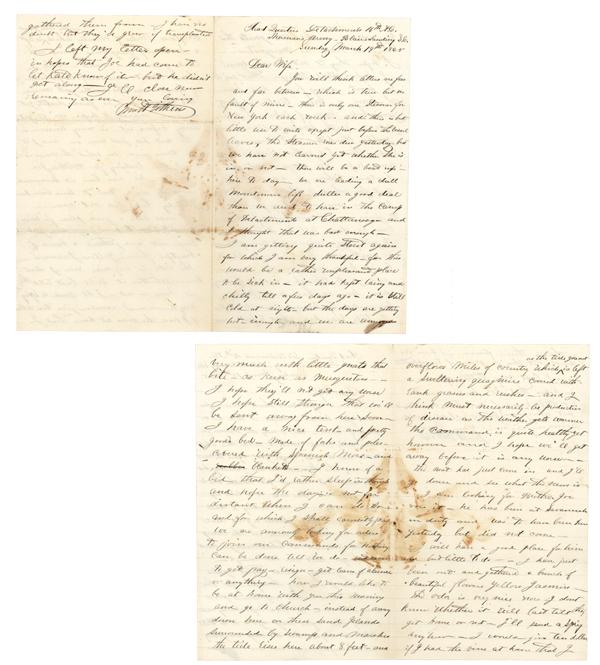 Head Quarters Detachments
Sherman's Army - Blairs Landing S.C.
Sunday March 19th 1865
Dear Wife
You will think letters is few
and far between - which is true but no
fault of mine - there is only one Steamer for
New York each week - and this is but
little use to write except just before the vessel
leaves, the Steamer was due yesterday but
we have not learned yet whether she is
in or not - there will be a boat up
here to day - we are leading a dull
Monotonous life - duller a good deal
than we used to have in the Camp
of Detachments at Chattanooga and
I thought that was bad enough -
I am getting quite Stout again
for which I am very thankful - for this
would be a rather unpleasant place
to be Sick in - it had kept rainy and
chilly till a few days ago - it is Still
Cold at night - but the days are getting
hot enough, and we are annoyed
very much with little gnats that
bite as keen as Musquitoes -
I hope they'll not get any worse
I hope Still though that we'll
be Sent away from here Soon -
I have a nice tent and pretty
good bed - Made of poles
covered with Spanish Moss - and
Blankets - I know of a
bed that I'd rather Sleep in though
and hope the day is not far
distant when I can
and for which I Shall earnestly
We are anxiously looking for orders
to join our Commands for nothing
Can be done till we do -
to get pay - resign - get leave of absence
or anything - how I would like to
be at home with you this Morning
and go to Church - instead of away
down here on these Sand Islands
Surrounded by Swamps and Marshes
the tide rises here about 8 feet - and
as the tide
overflows Miles of country which is left
a Sweltering covered with
rank grass and rushes - and I
think Must necessarily be productive
of disease as the weather gets warmer
the Command is quite healthy yet
however and I hope we'll get
away before it is any worse -
the boat has just come in and I'll
go down and see what the news is -
I am looking for Brother Joe
he has been at Savannah
on duty and was to have been here
Yesterday but did not come -
I will have a good place for him
and but little to do - I have just
been out and gathered a bunch of
beautiful flowers Yellow Jasmine -
the odor is very nice now I dont
know whether it will last till they
get home or not - I'll send a Sprig
any how - I would give ten dollars
if I had the vine at home that I
gathered them from - I have no
doubt but they'd grow if transplanted
I left my letter open
in hopes that Joe had come to
let Kate know of it - but he didn't
get along - I'll close now
remaining as ever your loving